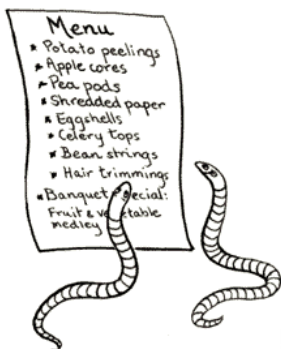 Menu
* Potato peelings
* Apple cores
* Pea pods
* Shredded paper
* Eggshells
* Celery tops
* Bean strings
* Hair trimmings
* Banquet Special:
Fruit & vegetable
medley